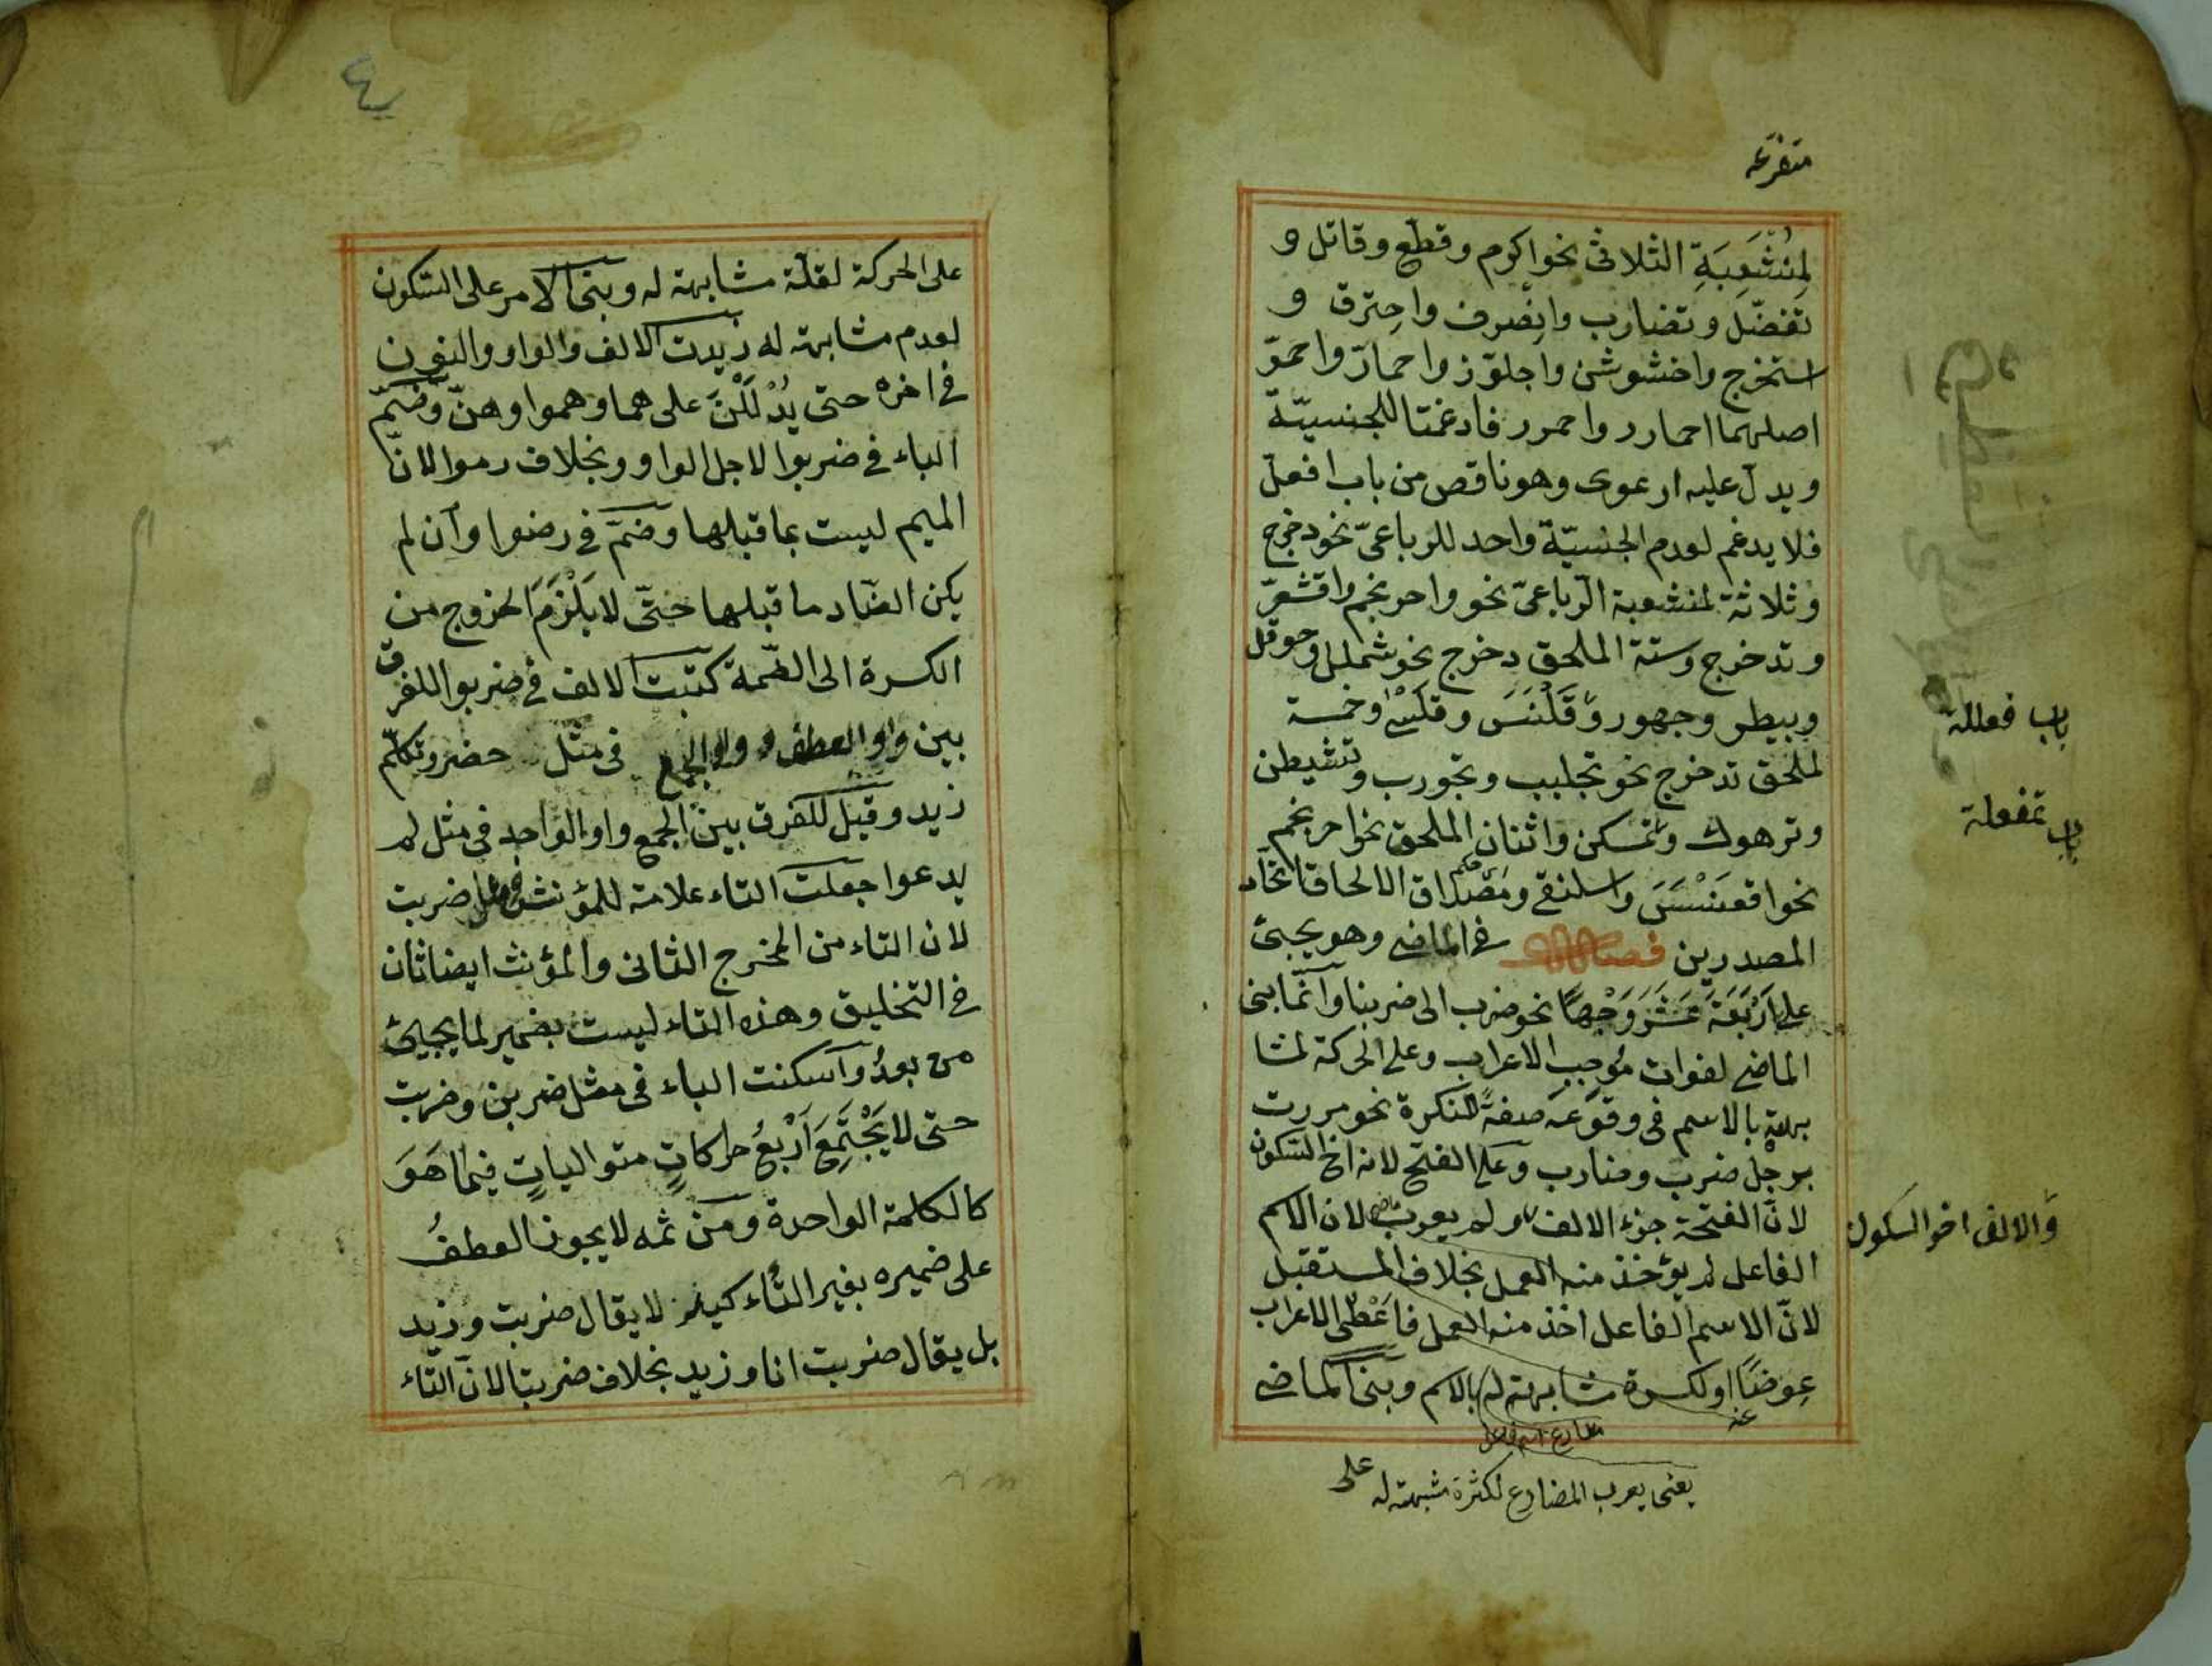 متفرعه
لمُنْشَعِبَةِ الثلاثى نحو اكرم وقطّع وقاتل و
تفضّل وتضارب وانصرف واحترق و
استخرج واخشوشن واجلوّز واحمارّ واحمرّ
اصلهما احمارر واحمرر فادغمتا للجنسيّة
ويدلّ عليه ارعوى وهو ناقص من باب افعلّ
فلا يدغم لعدم الجنسيّة واحد للرباعىّ نحو دخرج
وثلاثة لمنشعبة الرباعىّ نحو واحرنجم واقشعرّ
وتدخرج وستة الملحق دخرج نحو شملل وحوقل
وبيطر وجهور وقَلْنَسَ وقلسى وخمسة
لملحق تدخرج نحو تجلبب وتجورب وتشيطن
وترهوك وتمسكن واثنان الملحق نحو احرنجم
نحو اقعَنْسَسَ واسلنقى ومصداق الالحاق اتحاد
المصدرين فصل فى الماضى وهو يجئ
على اَرْبَعَةَ عَشَرَ وَجْهًا نحو ضرب الى ضربنا وانّما بنى
الماضى لفوات مُوجِبِ الاعراب وعلى الحركة لمشا
بهته بالاسم فى وقوعه صفةً للنكرة نحو مررت
برجل ضرب وضارب وعلى الفتح لانه اخ السكون
لانّ الفتحة جزء الالف ولم يعرب لان الاسم
الفاعل لم يؤخذ منه العمل بخلاف المستقبل
لانّ الاسم الفاعل اخذ منه العمل فاعطى الاعراب
عِوضًا او لكسرة مشابهته له بالاسم وبنى الماضى
عنه
مضارع اسم فاعل
يعنى يعرب المضارع لكثرة مشبهته له على
باب فعللة
باب تفعلة
والالف اخو السكون
٤
على الحركة لقلّة مشابهته له وبنى الامر على السّكون
لعدم مشابهته له زيدت الالف والواو والنون
فى اخره حتى يَدْلُلْنَ على هما وهموا وهنّ وضمّ
الباء فى ضربوا لاجل الواو وبخلاف رموا لانّ
الميم ليست بما قبلها وضمّ فى رضوا وان لم
يكن الضّاد ما قبلها حتّى لا يَلْزَمَ الخروج من
الكسرة الى الضّمة كتبت الالف فى ضربوا للفرق
بين واو العطف وواو الجمع فى مثل حضر وتكلّم
زيد وقيل للفرق بين الجمع واو الواحد فى مثل لم
يدعوا جعلت التاء علامة للمؤنث فى مثل ضربت
لان التاء من المخرج الثانى والمؤنث ايضا ثان
فى التخليق وهذه التاء ليست بضمير لما يجيئ
من بعدُ واسكنت الباء فى مثل ضربن وضربت
حتى لا يَجْتَمِعَ اَرْبَعُ حركاتٍ متوالياتٍ فيما هَوَ
كالكلمة الواحدة ومن ثمه لا يجوز العطفُ
على ضميره بغير التأكيد لا يقال ضربت وزيد
بل يقال ضربت انا وزيد بخلاف ضربتا لانّ التّاء